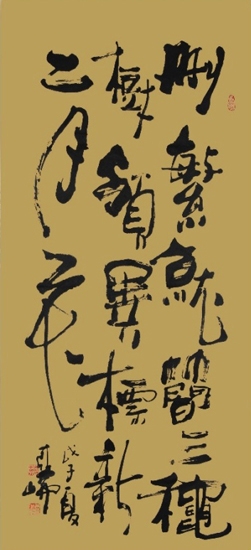 刪繁就簡三穐
樹領異標新
二月花
戊子夏